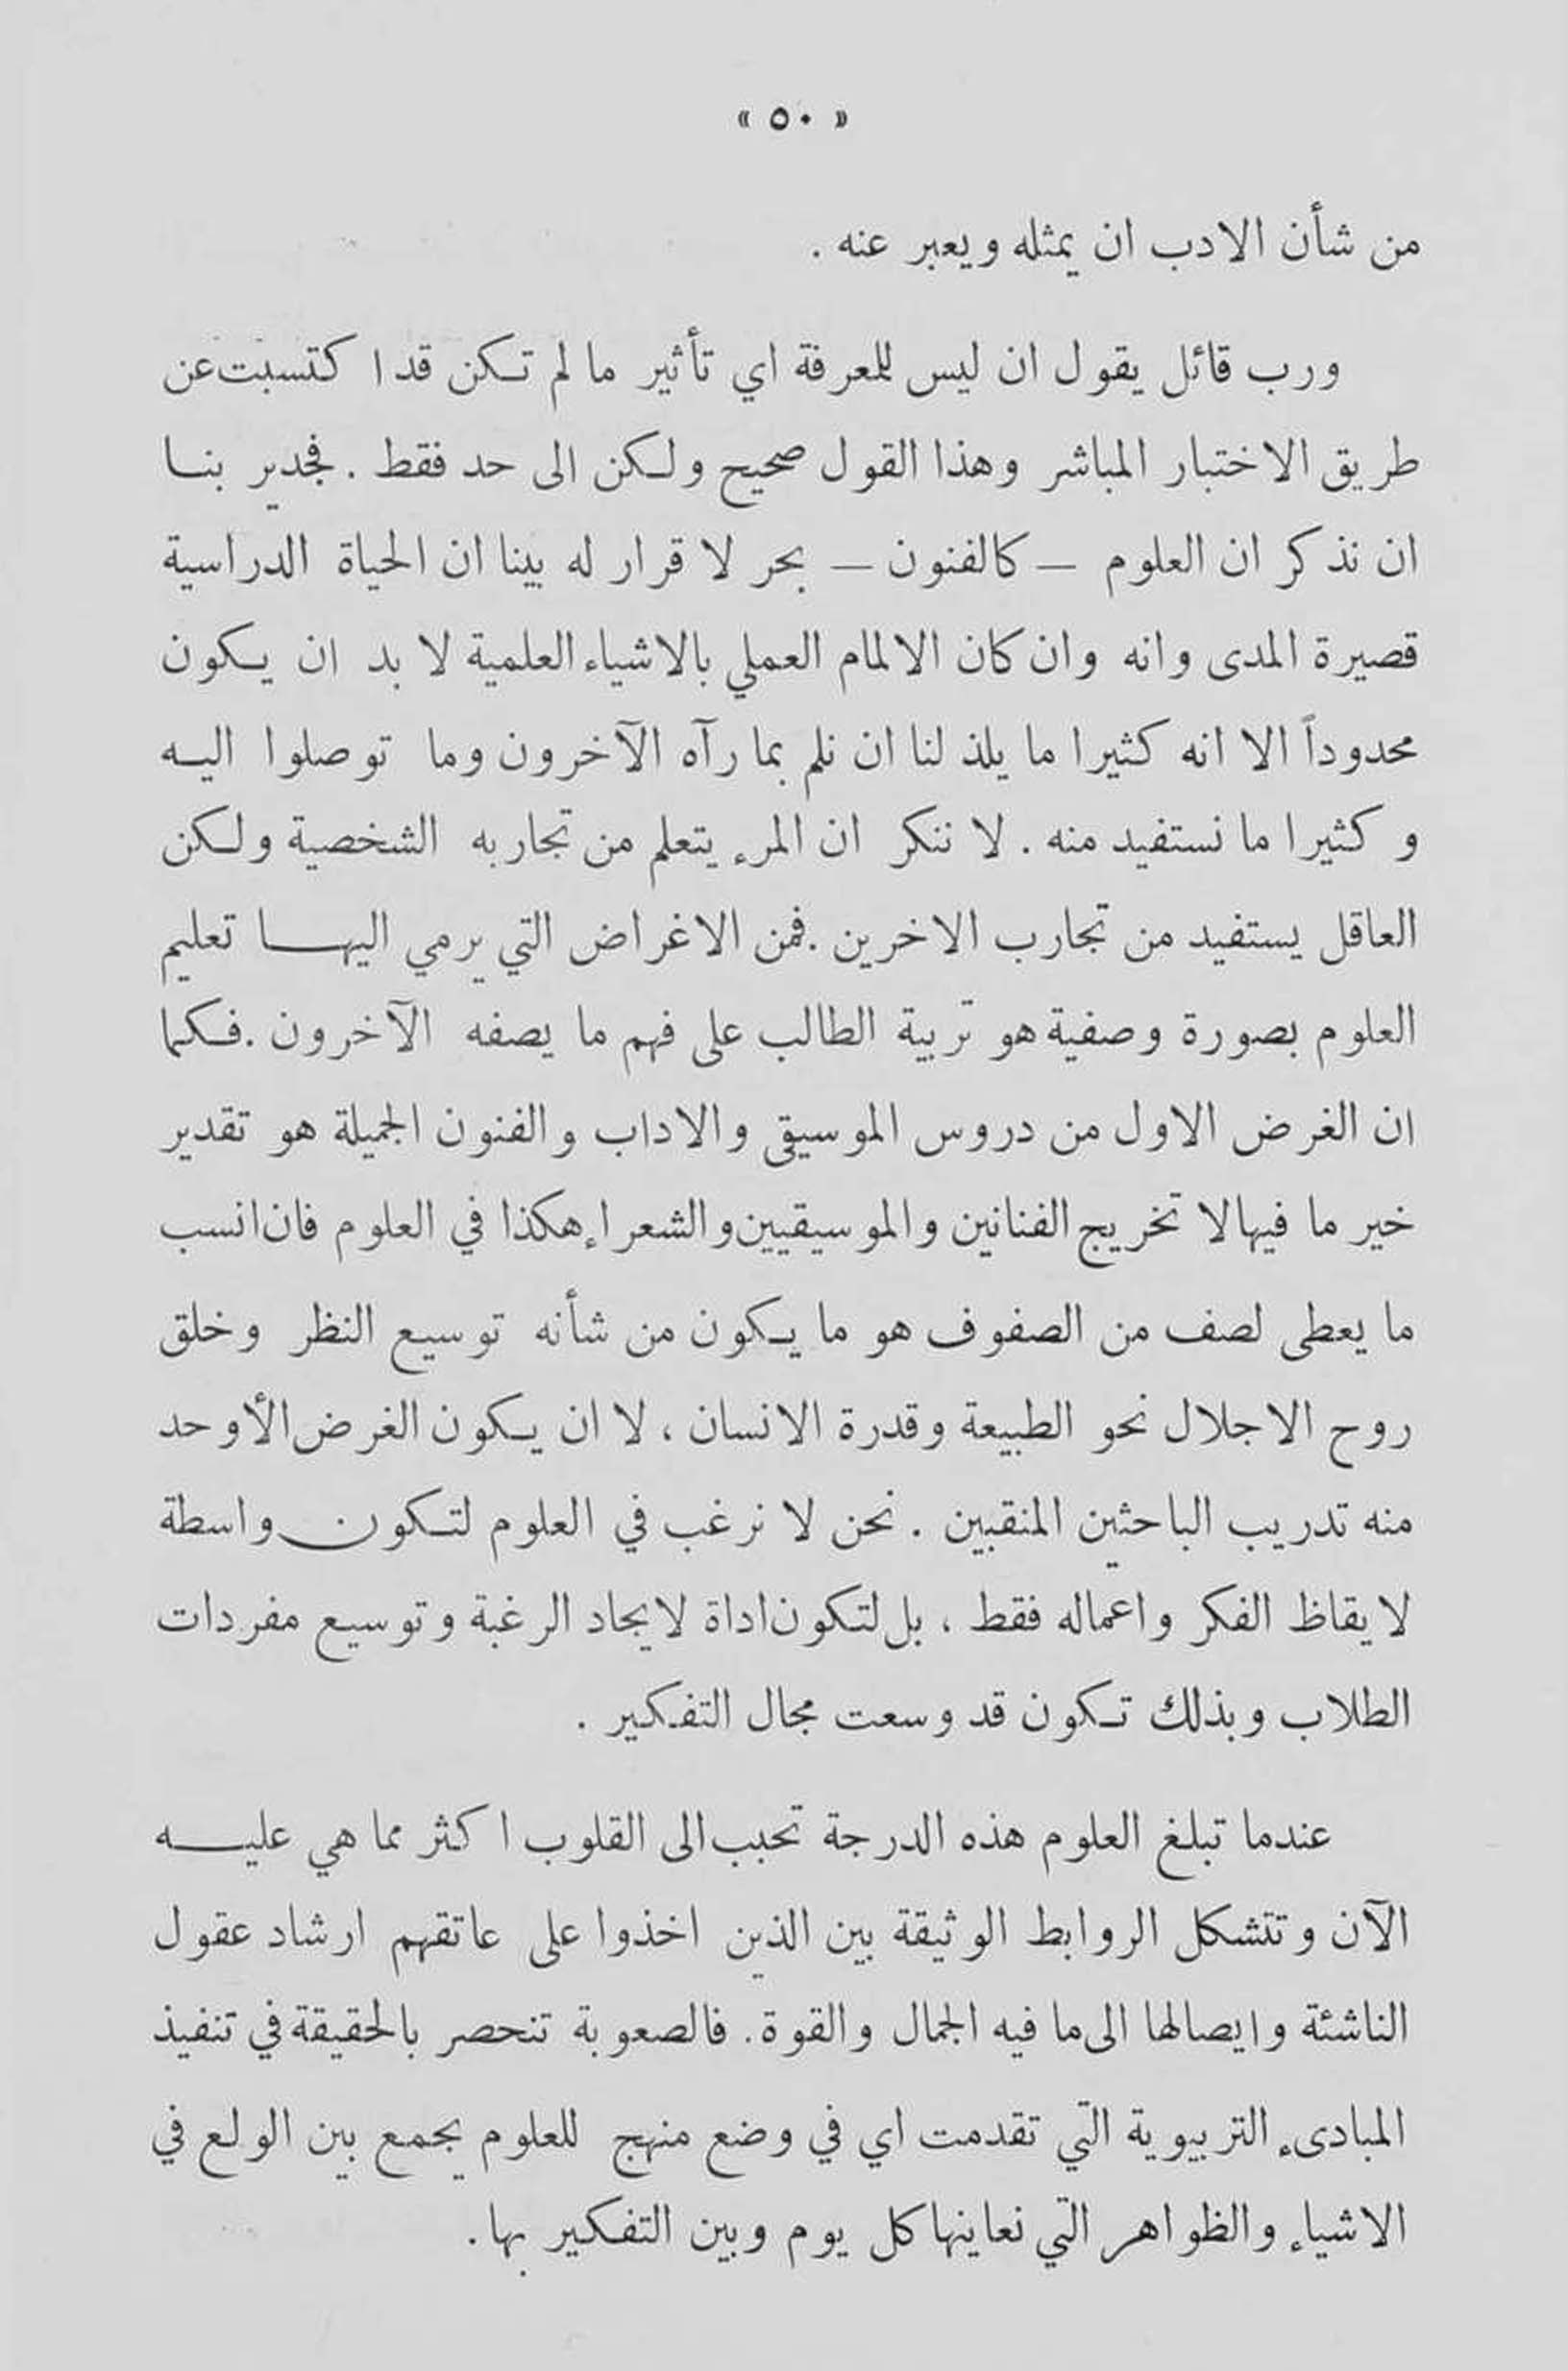 « ٥٠ »
من شأن الادب ان يمثله ويعبر عنه .
ورب قائل يقول ان ليس للمعرفة اي تأثير ما لم تكن قد اكتسبت عن
طريق الاختبار المباشر وهذا القول صحيح ولكن الى حد فقط . فجدير بنا
ان نذكر ان العلوم – كالفنون – بحر لا قرار له بينا ان الحياة الدراسية
قصيرة المدى وانه وان كان الالمام العملي بالاشياء العلمية لا بد ان يكون
محدوداً الا انه كثيرا ما يلذ لنا ان نلم بما رآه الآخرون وما توصلوا اليه
وكثيرا ما نستفيد منه . لا ننكر ان المرء يتعلم من تجاربه الشخصية ولكن
العاقل يستفيد من تجارب الاخرين . فمن الاغراض التي يرمي اليها تعليم
العلوم بصورة وصفية هو تربية الطالب على فهم ما يصفه الآخرون . فكما
ان الغرض الاول من دروس الموسيقى والاداب والفنون الجميلة هو تقدير
خير ما فيها لا تخريج الفنانين والموسيقيين والشعراء هكذا في العلوم فان انسب
ما يعطى لصف من الصفوف هو ما يكون من شأنه توسيع النظر وخلق
روح الاجلال نحو الطبيعة وقدرة الانسان ، لا ان يكون الغرض الأوحد
منه تدريب الباحثين المنقبين . نحن لا نرغب في العلوم لتكون واسطة
لايقاظ الفكر واعماله فقط ، بل لتكون اداة لايجاد الرغبة وتوسيع مفردات
الطلاب وبذلك تكون قد وسعت مجال التفكير .
عندما تبلغ العلوم هذه الدرجة تحبب الى القلوب اكثر مما هي عليه
الآن وتتشكل الروابط الوثيقة بين الذين اخذوا على عاتقهم ارشاد عقول
الناشئة وايصالها الى ما فيه الجمال والقوة . فالصعوبة تنحصر بالحقيقة في تنفيذ
المبادىء التربيوية التي تقدمت اي في وضع منهج للعلوم يجمع بين الولع في
الاشياء والظواهر التي نعاينها كل يوم وبين التفكير بها .